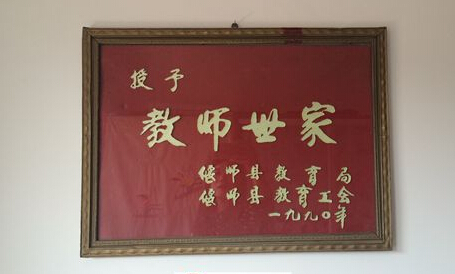 授予
教师世家
偃师县教育局
偃师县教育工会
一九九〇年